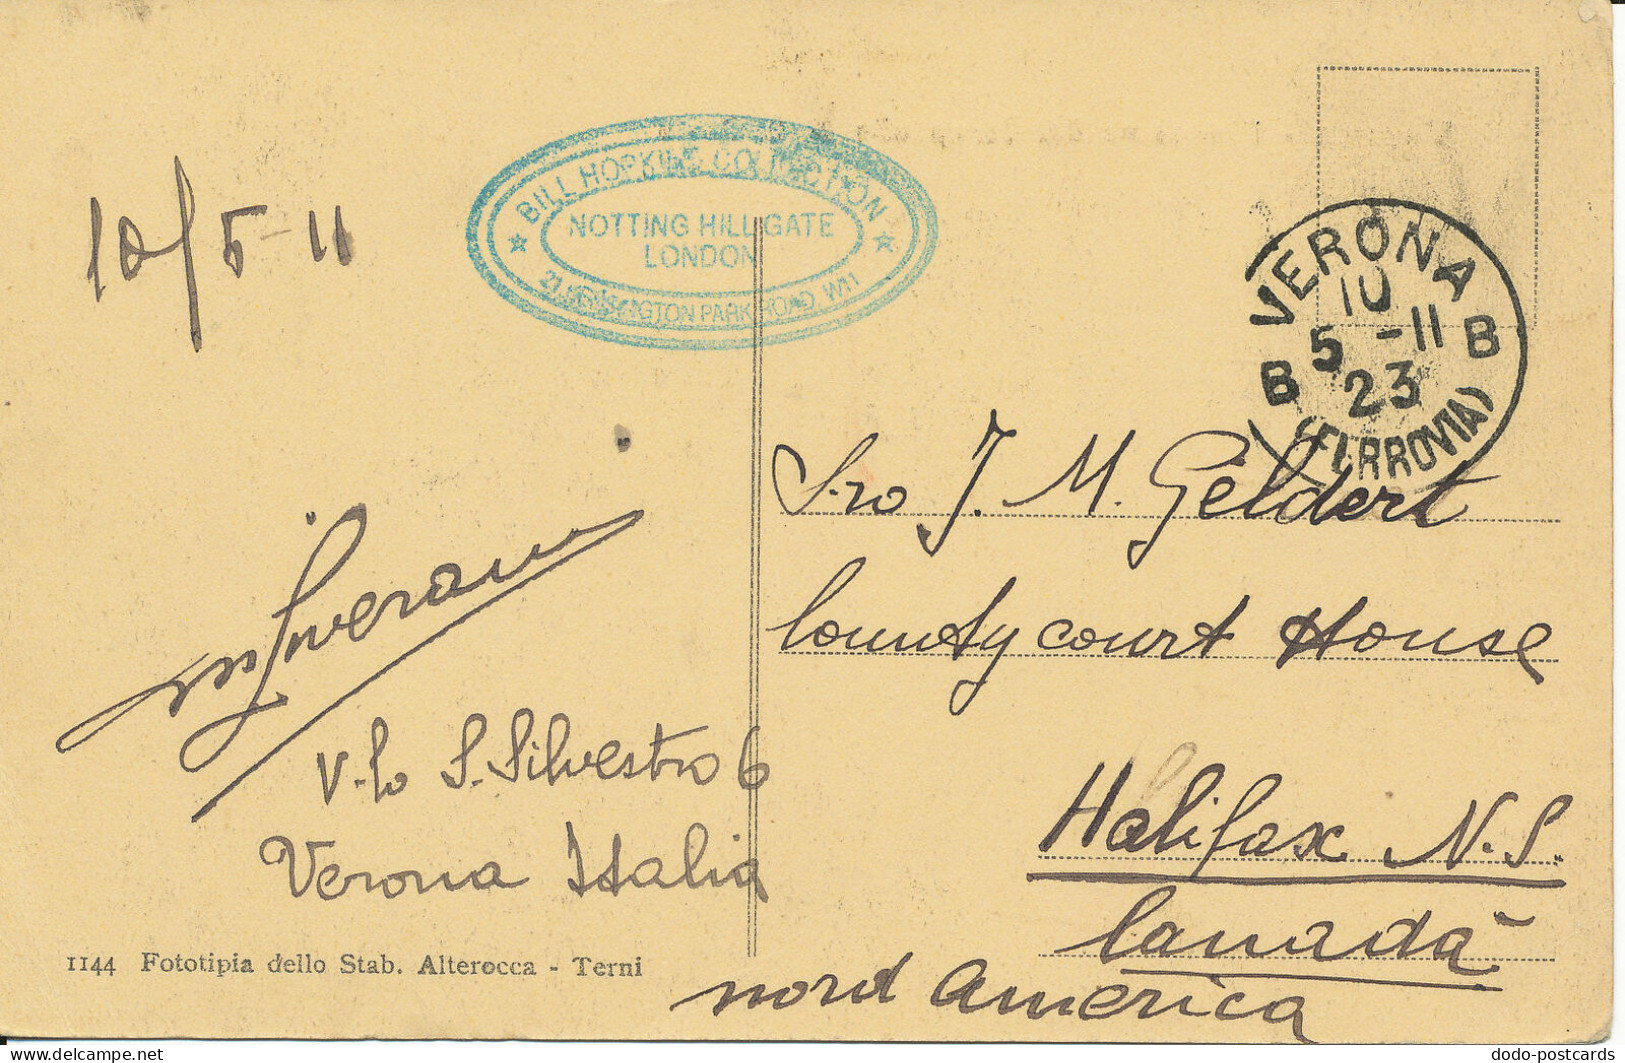 10/5-11
BILL HOPKINS COLLECTION
NOTTING HILL GATE
LONDON
KENSINGTON PARK ROAD, W11
VERONA
10
5 -11
23
B B
(FERROVIA)
J. M. Geldert
County court House
Halifax N.S.
Canadà
nord America
V-lo S. Silvestro 6
Verona Italia
1144 Fototipia dello Stab. Alterocca - Terni
dodo-postcards
delcampe.net